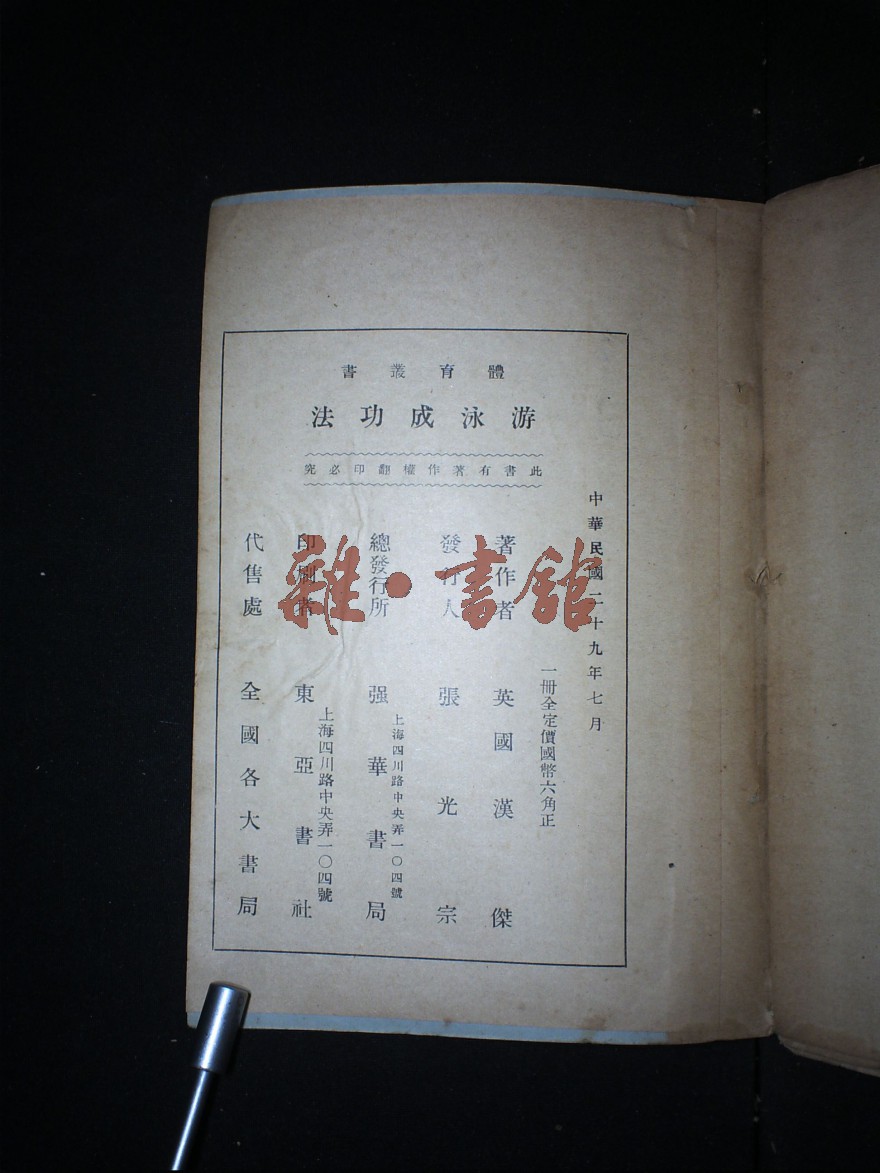 體育叢書
游泳成功法
此書有著作權翻印必究
中華民國二十九年七月
一冊全定價國幣六角正
著作者 英國漢傑
發行人 張光宗
總發行所 强華書局
上海四川路中央弄一〇四號
印刷者 東亞書社
上海四川路中央弄一〇四號
代售處 全國各大書局
雜·書館